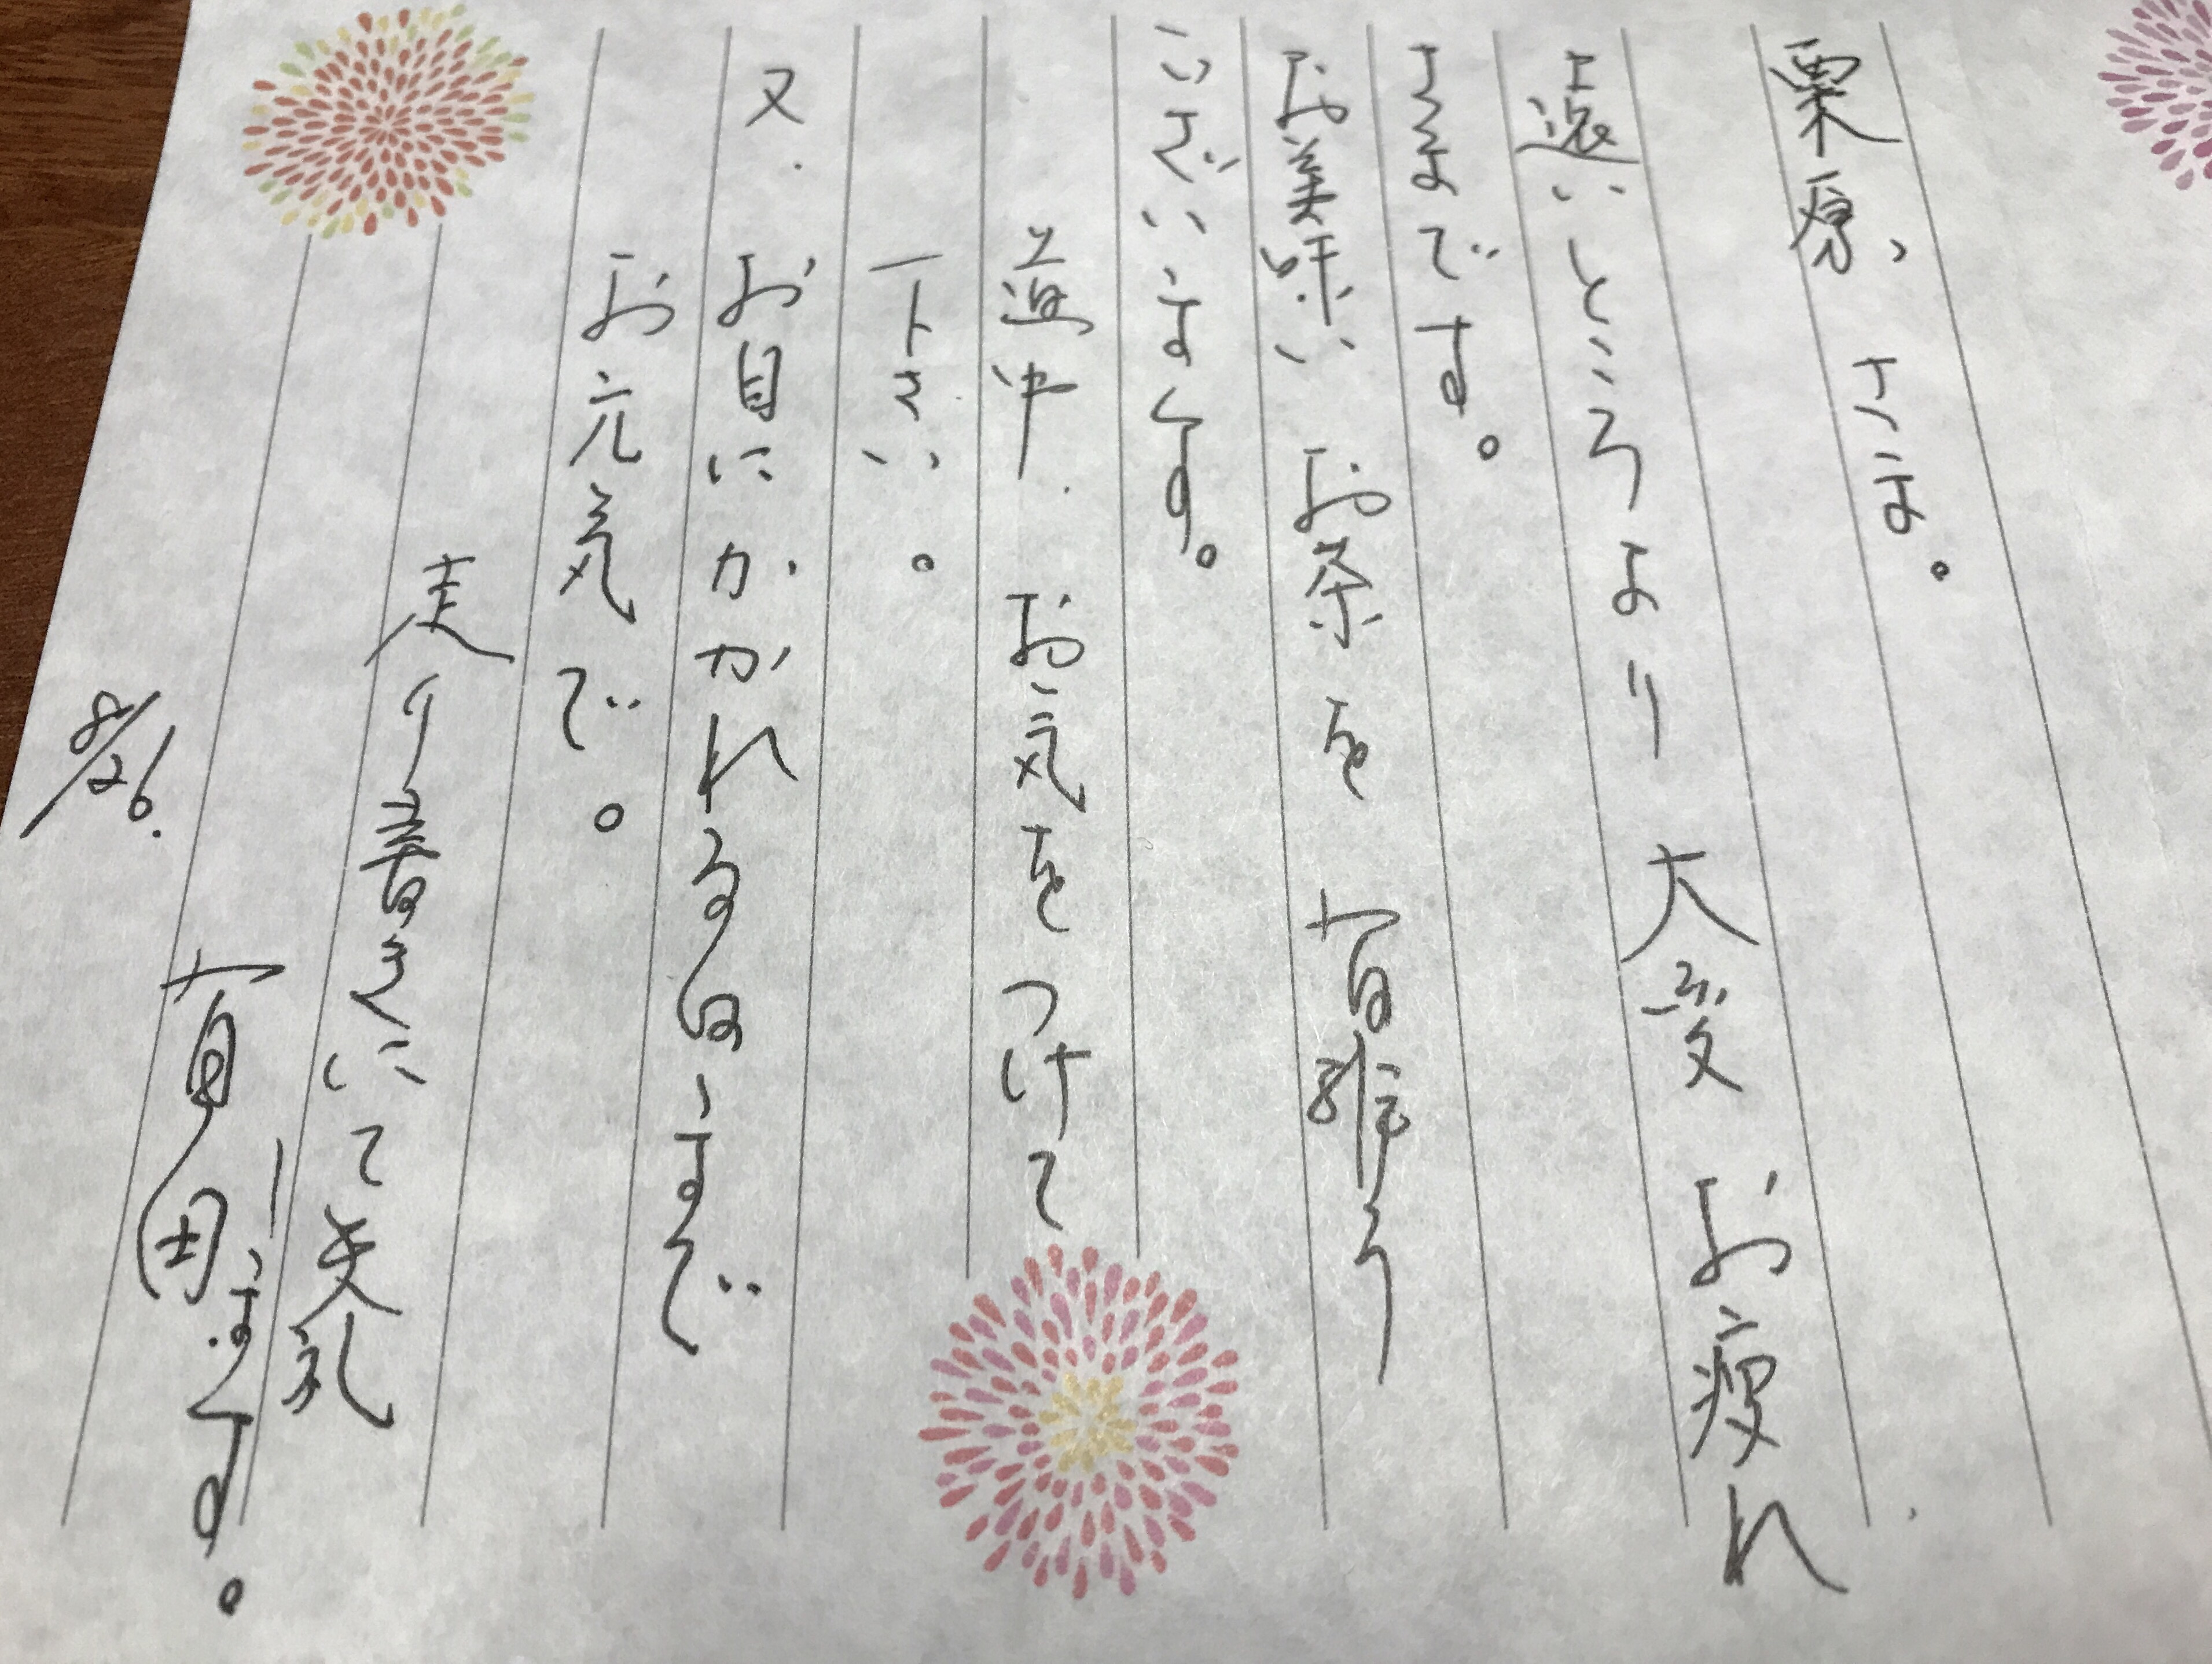 栗原、さま。
遠いところより 大変 お疲れ
さまです。
お美味いお茶を 有難う
ございます。
道中、お気をつけて
下さい。
又、お目にかかれる日まで
お元気で。
走り書きにて失礼
します。
8/26.